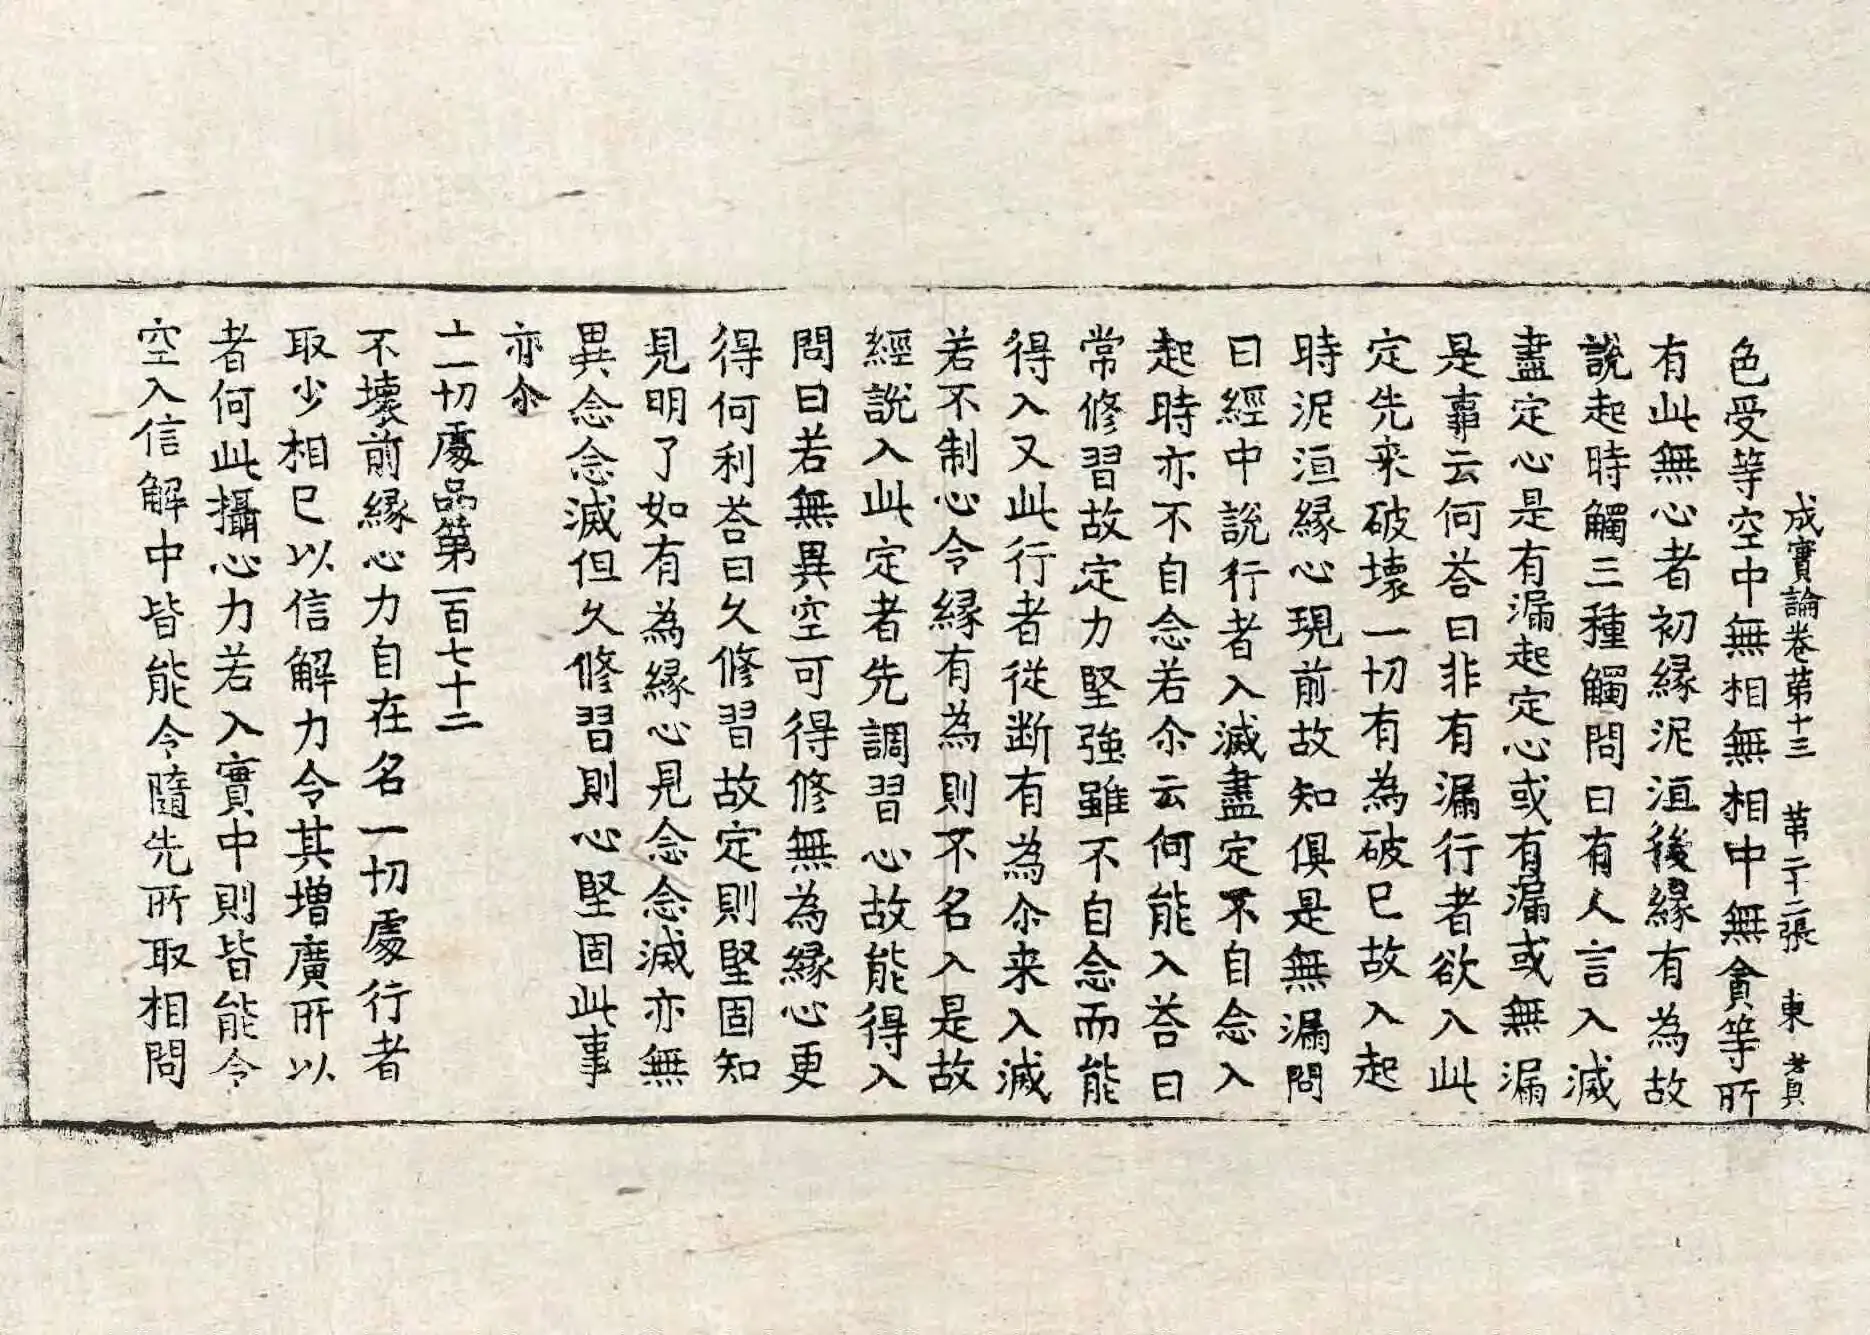 成實論卷苐十三 苐二十二張 東 賷
色受等空中無相無相中無貪等所
有此無心者初縁泥洹後縁有為故
說起時觸三種觸問曰有人言入滅
盡定心是有漏起定心或有漏或無漏
是事云何荅曰非有漏行者欲入此
定先来破壞一切有為破已故入起
時泥洹縁心現前故知俱是無漏問
曰經中說行者入滅盡定不自念入
起時亦不自念若尒云何能入荅曰
常修習故定力堅強雖不自念而能
得入又此行者從断有為尒来入滅
若不制心令縁有為則不名入是故
經說入此定者先調習心故能得入
問曰若無異空可得修無為縁心更
得何利荅曰久修習故定則堅固知
見明了如有為縁心見念念滅亦無
異念念滅但久修習則心堅固此事
亦尒
十一切處品第一百七十二
不壞前縁心力自在名一切處行者
取少相已以信解力令其増廣所以
者何此攝心力若入實中則皆能令
空入信解中皆能令隨先所取相問